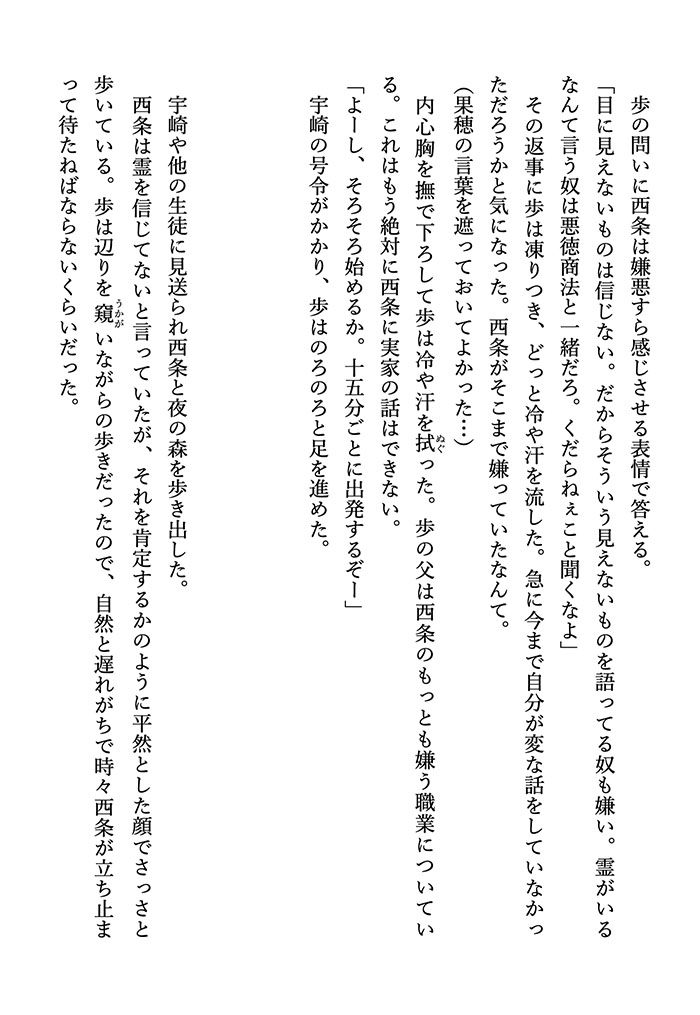 歩の問いに西条は嫌悪すら感じさせる表情で答える。
「目に見えないものは信じない。だからそういう見えないものを語ってる奴も嫌い。霊がいる
なんて言う奴は悪徳商法と一緒だろ。くだらねぇこと聞くなよ」
その返事に歩は凍りつき、どっと冷や汗を流した。急に今まで自分が変な話をしていなかっ
ただろうかと気になった。西条がそこまで嫌っていたなんて。
（果穂の言葉を遮っておいてよかった…）
内心胸を撫で下ろして歩は冷や汗を拭ぬぐった。歩の父は西条のもっとも嫌う職業についてい
る。これはもう絶対に西条に実家の話はできない。
「よーし、そろそろ始めるか。十五分ごとに出発するぞー」
宇崎の号令がかかり、歩はのろのろと足を進めた。
宇崎や他の生徒に見送られ西条と夜の森を歩き出した。
西条は霊を信じてないと言っていたが、それを肯定するかのように平然とした顔でさっさと
歩いている。歩は辺りを窺うかがいながらの歩きだったので、自然と遅れがちで時々西条が立ち止ま
って待たねばならないくらいだった。